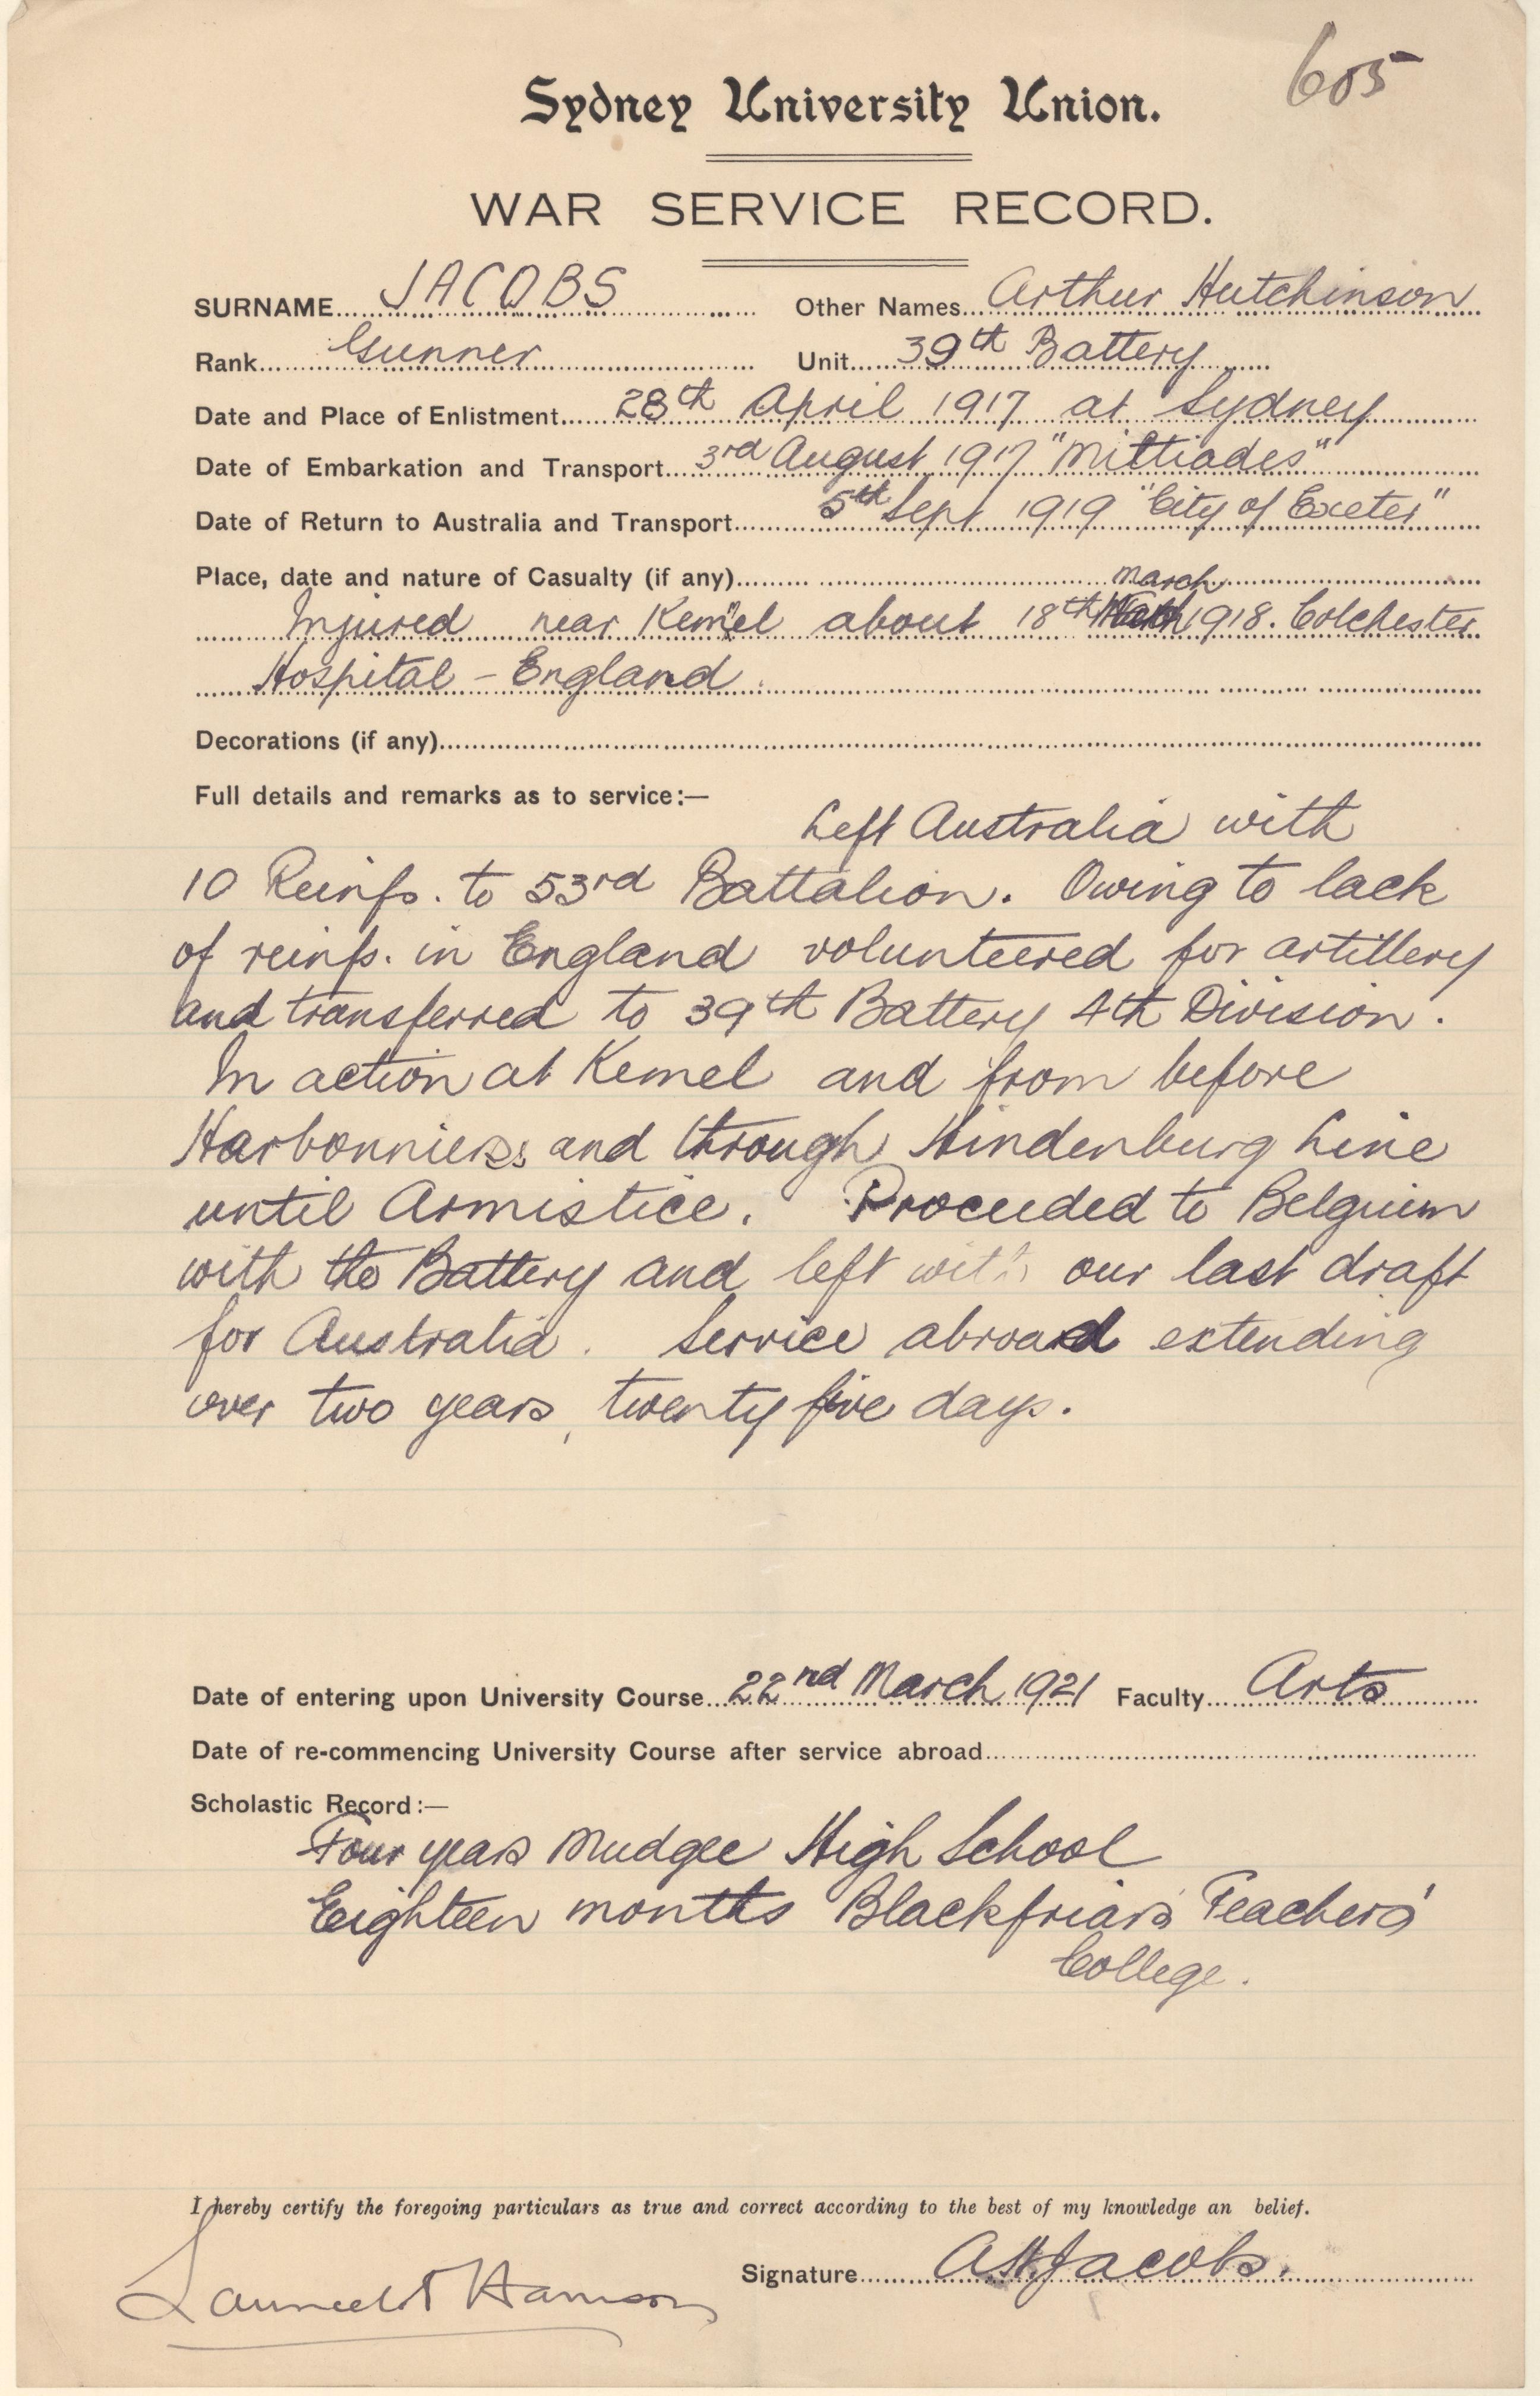 605
Sydney University Union.
WAR SERVICE RECORD.
SURNAME JACOBS Other Names Arthur Hutchinson
Rank Gunner Unit 39th Battery
Date and Place of Enlistment 28th April 1917 at Sydney
Date of Embarkation and Transport 3rd August 1917 "Miltiades"
Date of Return to Australia and Transport 5th Sept 1919 "City of Exeter"
Place, date and nature of Casualty (if any)
March
Injured near Kemmel about 18th 1918. Colchester
Hospital - England.
Decorations (if any)
Full details and remarks as to service:—
Left Australia with
10 Reinfs. to 53rd Battalion. Owing to lack
of reinfs. in England volunteered for artillery
and transferred to 39th Battery 4th Division.
In action at Kemel and from before
Harbonniers and through Hindenburg Line
until Armistice. Proceeded to Belgium
with the Battery and left with our last draft
for Australia. Service abroad extending
over two years, twenty five days.
Date of entering upon University Course 22nd March 1921 Faculty Arts
Date of re-commencing University Course after service abroad
Scholastic Record:—
Four years Mudgee High School
Eighteen months Blackfriars Teachers'
College.
I hereby certify the foregoing particulars as true and correct according to the best of my knowledge an belief.
Signature A.H.Jacobs.